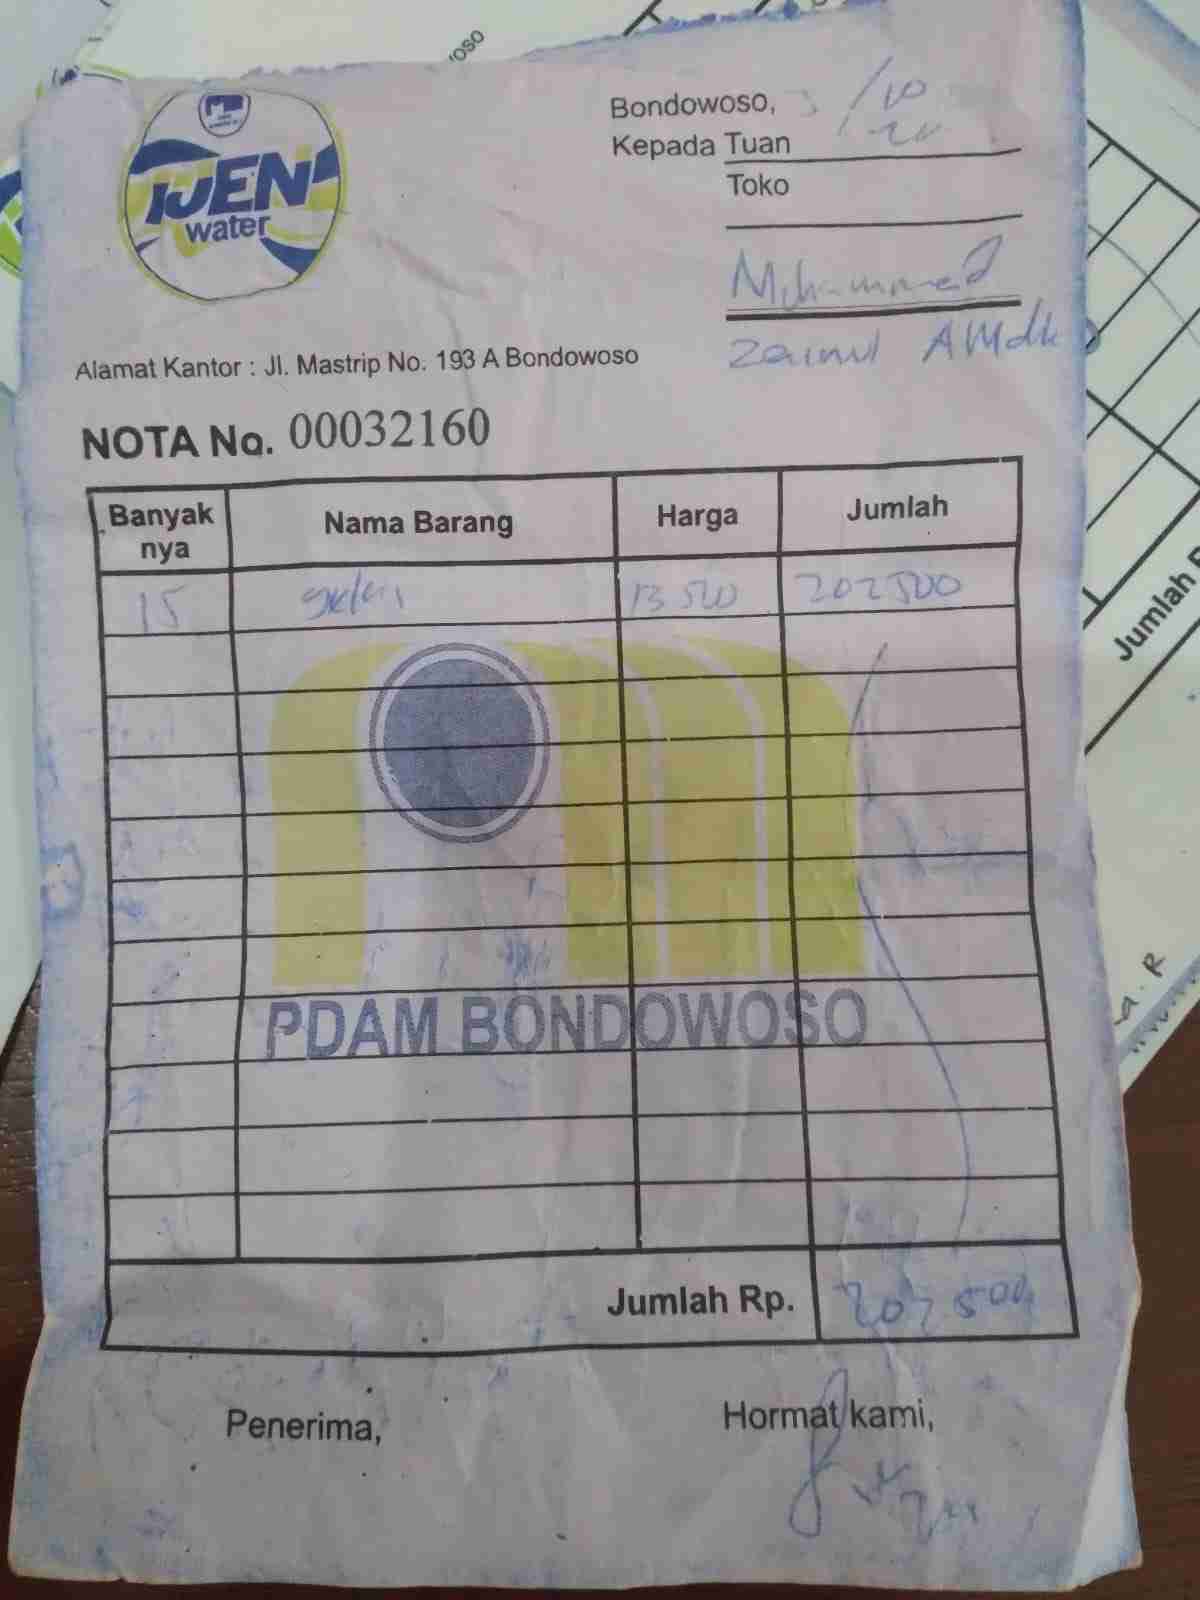 IJEN
water
Bondowoso, 3/10
20
Kepada Tuan
Toko
Mohammad
Zainul AMdk
Alamat Kantor : Jl. Mastrip No. 193 A Bondowoso
NOTA No. 00032160
Banyak nya Nama Barang Harga Jumlah
15 13500 202500
PDAM BONDOWOSO
Jumlah Rp. 202500
Penerima,
Hormat kami,
Jumlah